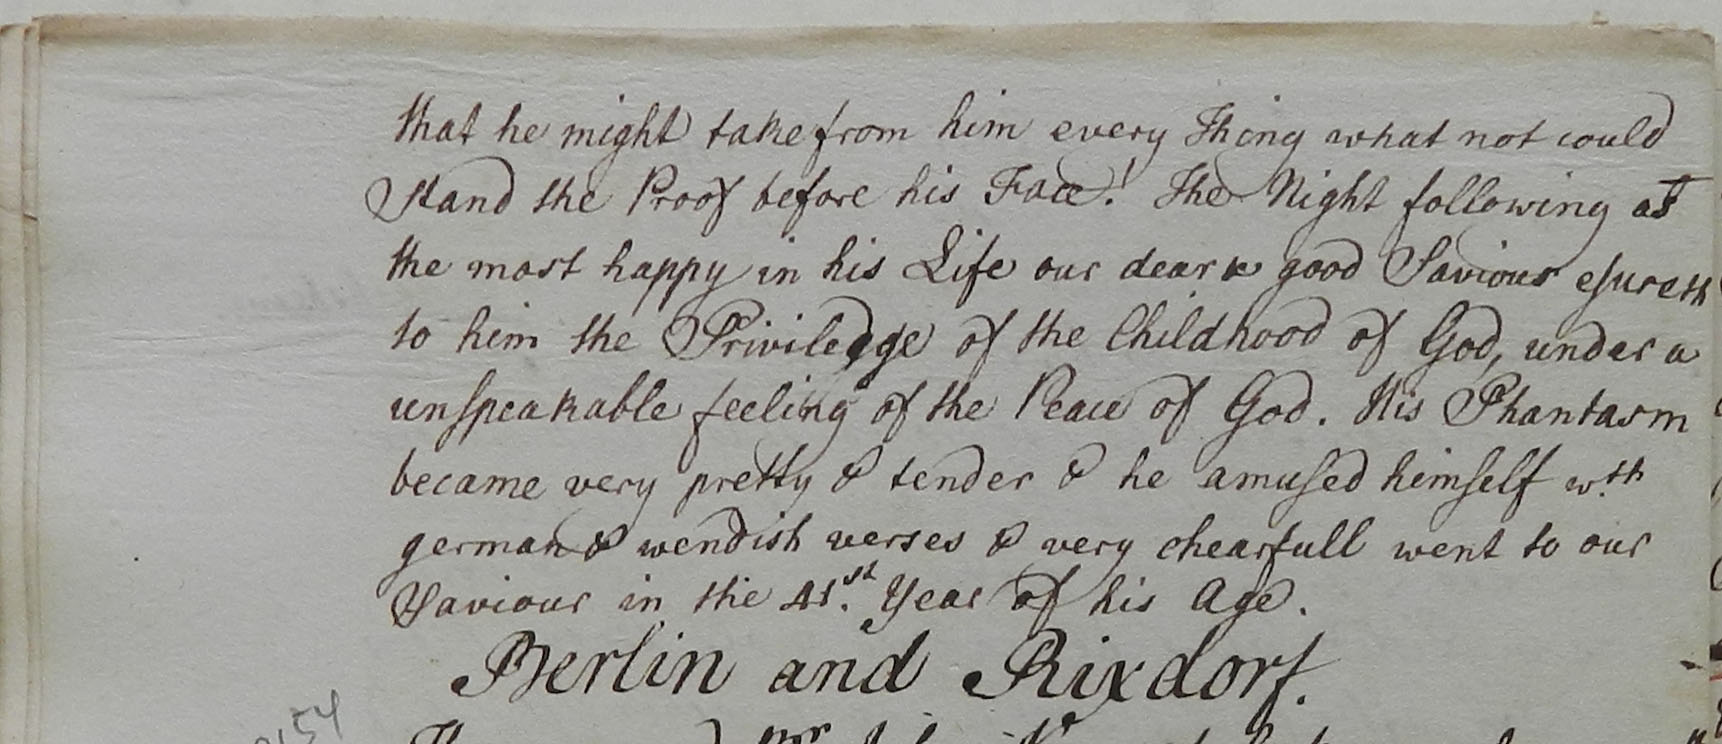 that he might take from him every Thing what not could
Stand the Proof before his Face! The Night following as
the most happy in his Life our dear & good Saviour esureth
to him the Priviledge of the Childhood of God, under a
unspeakable feeling of the Peace of God. His Phantasm
became very pretty & tender & he amused himself wth
german & wendish verses & very chearfull went to our
Saviour in the 41st. Year of his Age.
Berlin and Rixdorf.